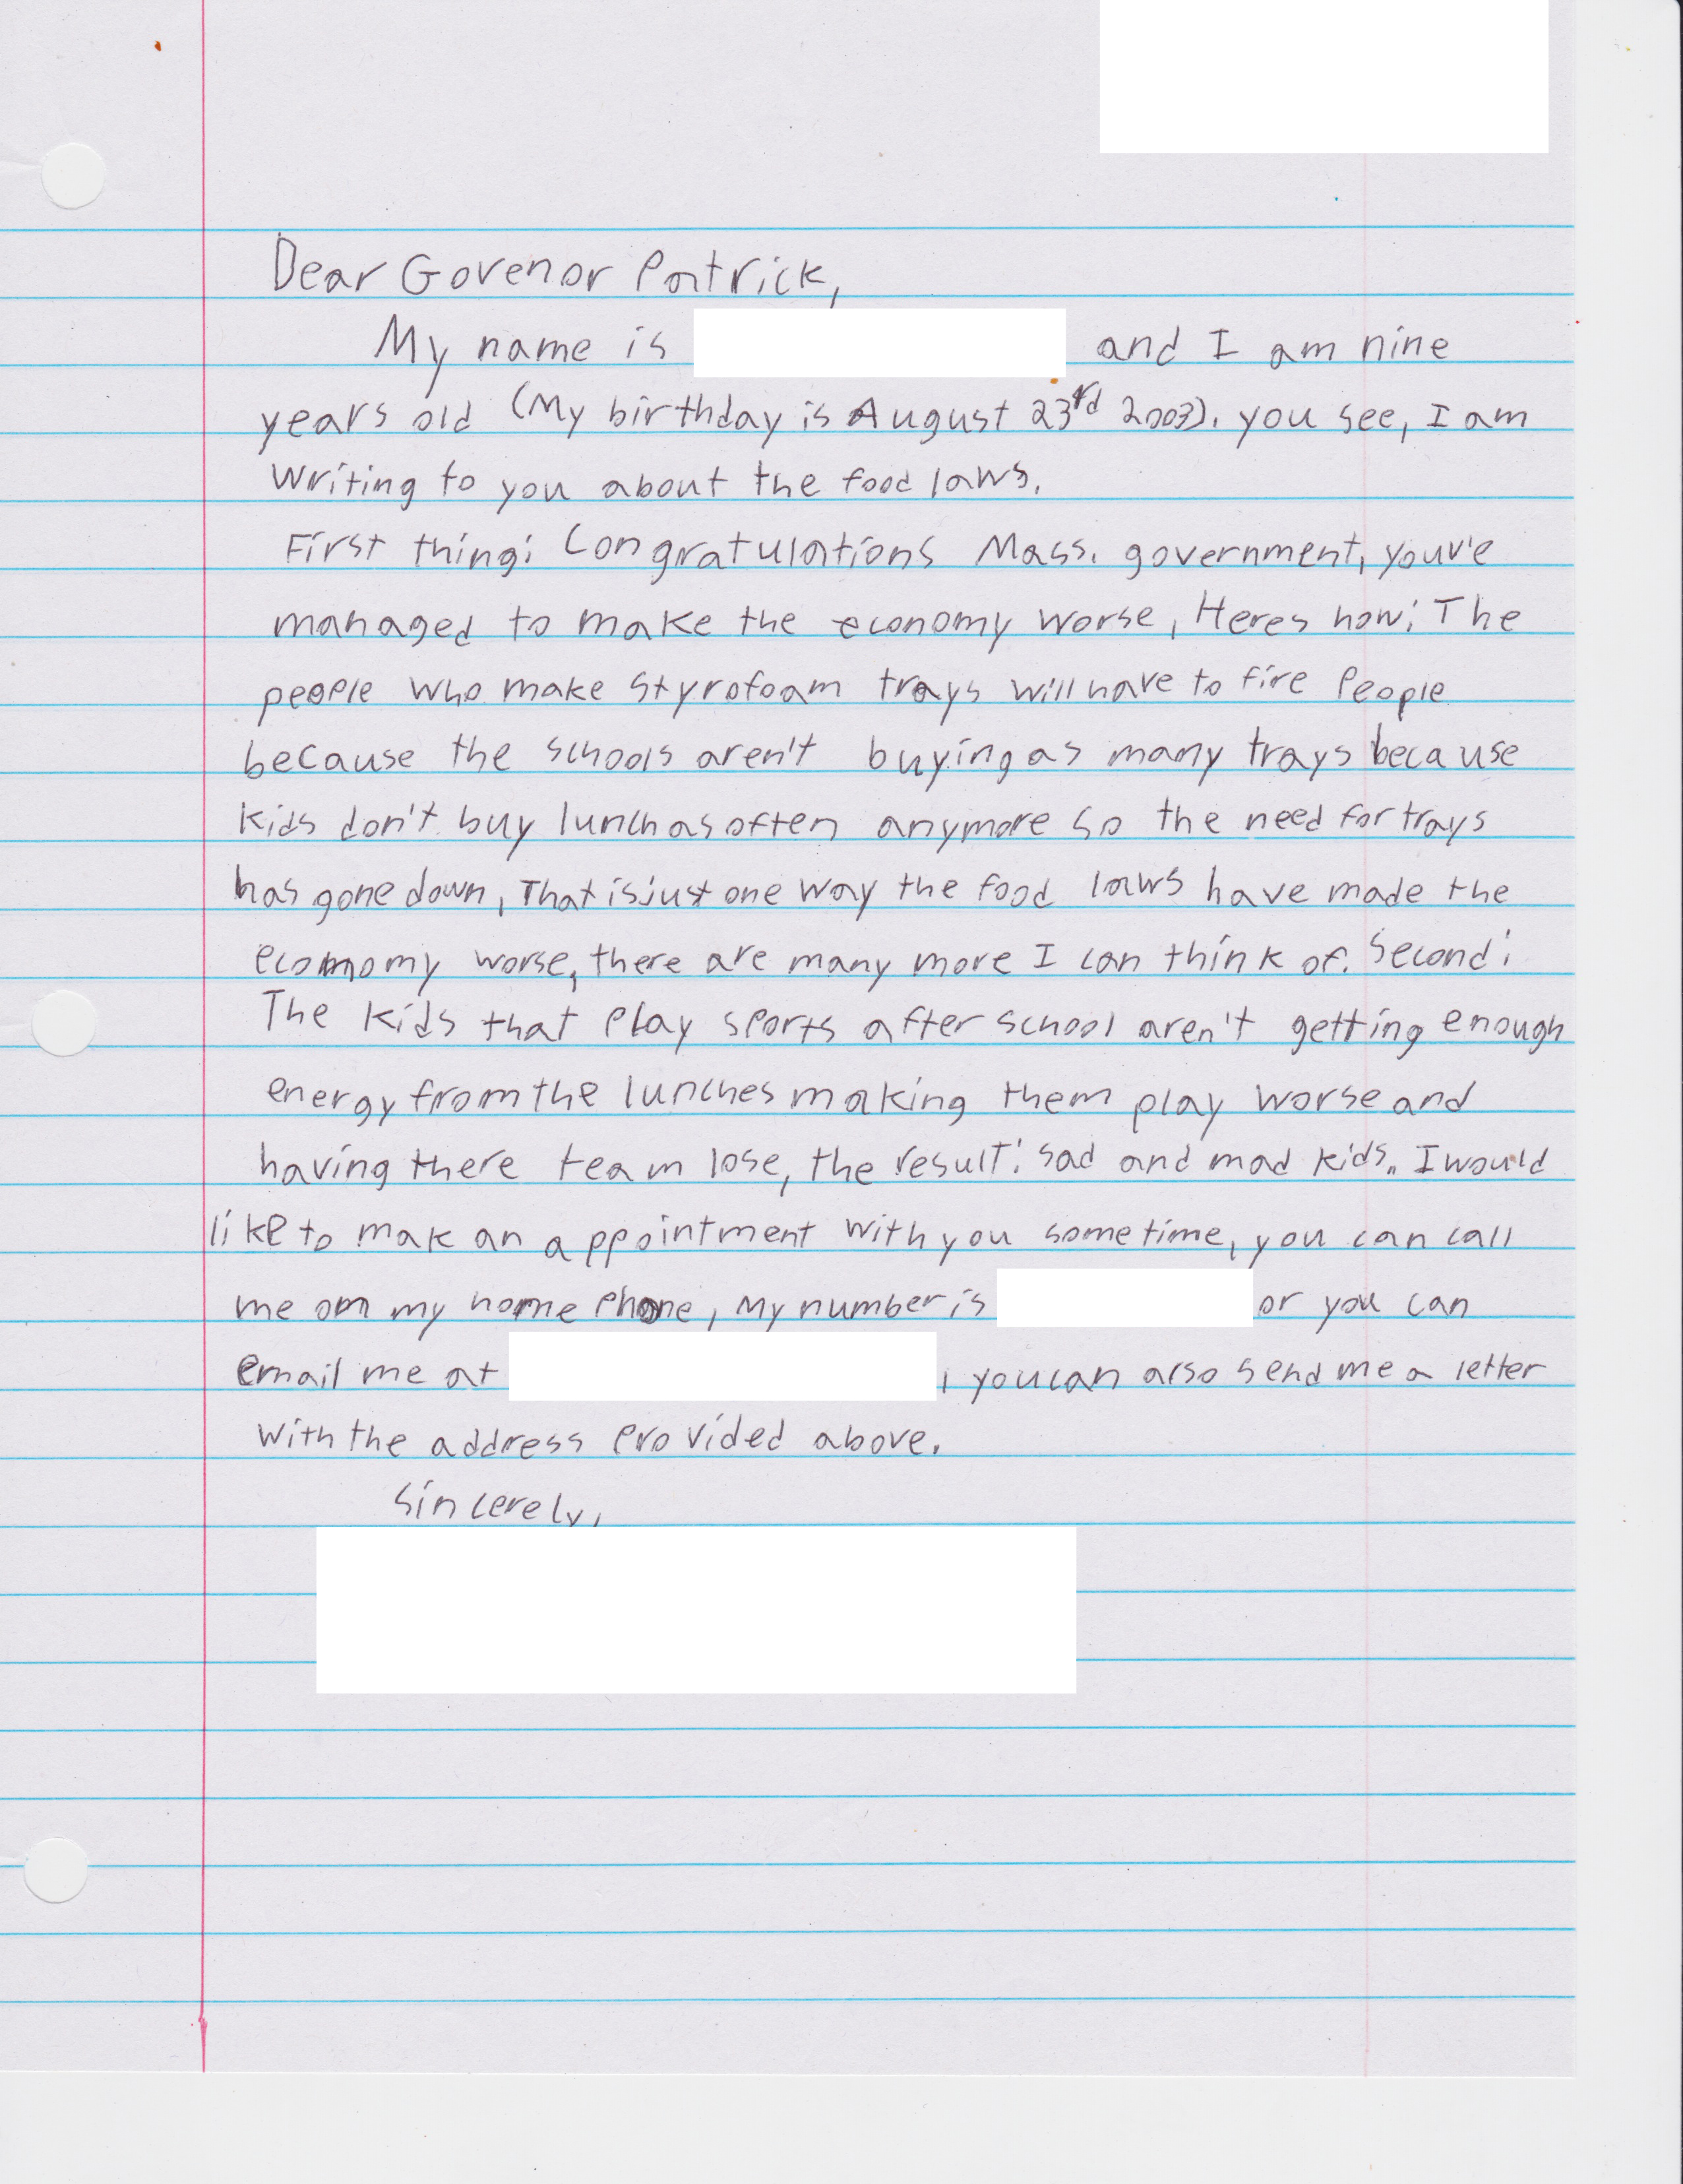 Dear Govenor Patrick,
My name is and I am nine
years old (My birthday is August 23rd 2003). you see, I am
writing to you about the food laws.
First thing: Congratulations Mass. government, youv'e
managed to make the economy worse, Heres how: The
people who make styrofoam trays will have to fire people
because the schools aren't buying as many trays because
kids don't buy lunch as often anymore so the need for trays
has gone down, That is just one way the food laws have made the
economy worse, there are many more I can think of. Second:
The kids that play sports after school aren't getting enough
energy from the lunches making them play worse and
having there team lose, the result: sad and mad kids. I would
like to mak an appointment with you sometime, you can call
me on my home phone, My number is or you can
email me at , you can also send me a letter
with the address provided above.
Sincerely,